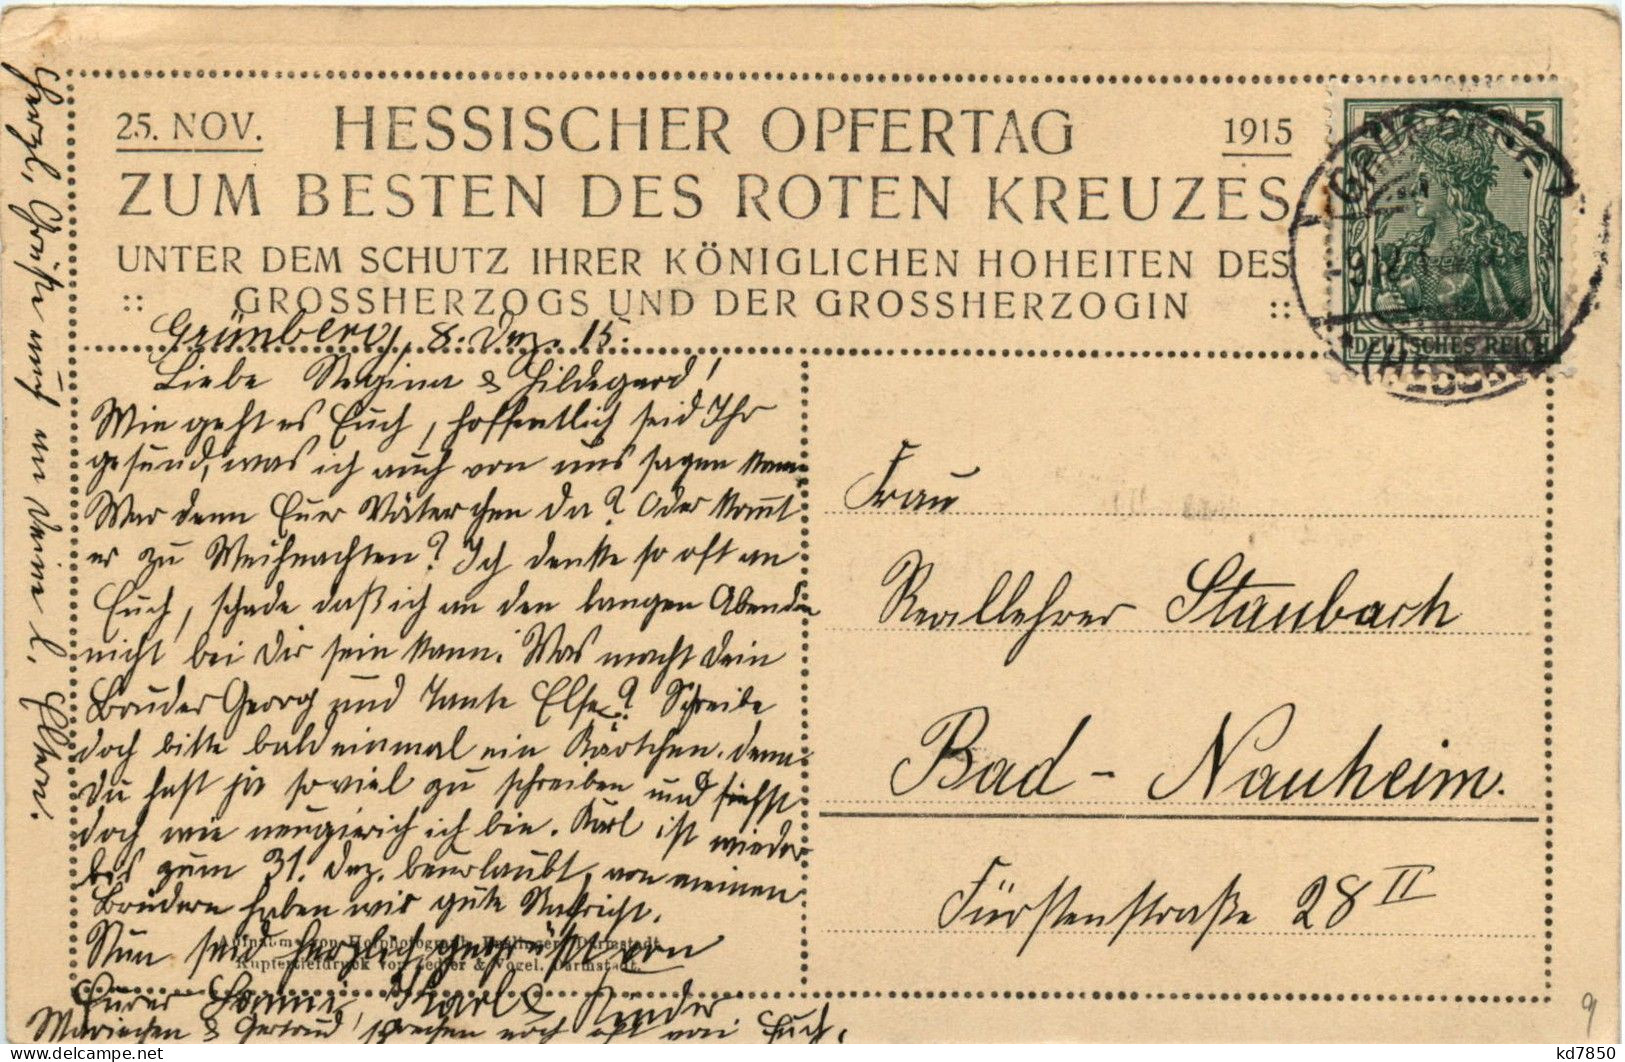 25. NOV. HESSISCHER OPFERTAG 1915
ZUM BESTEN DES ROTEN KREUZES
UNTER DEM SCHUTZ IHRER KÖNIGLICHEN HOHEITEN DES
:: GROSSHERZOGS UND DER GROSSHERZOGIN ::
5
9.12.
DEUTSCHES REICH
Grünberg, 8. Dez. 15.
Liebe Regina & Hildegard!
Wie geht es Euch, hoffentlich seid Ihr
gesund, was ich auch von uns sagen kann.
War denn Euer Väterchen da? Oder kommt
er zu Weihnachten? Ich denke so oft an
Euch, schade daß ich an den langen Abenden
nicht bei Dir sein kann. Was macht Dein
Bruder Georg und Tante Else? Schreibe
doch bitte bald einmal ein Kärtchen. denn
Du hast ja soviel zu schreiben und siehst
doch wie neugierich ich bin. Karl ist wieder
bis zum 31. Dez. beurlaubt, von meinen
Brüdern haben wir gute Nachricht.
Nun seid herzlich gegrüßt von
Eurer Karl & Kinder
Mariechen & Gertrud sprechen noch oft von Euch.
Herzl. Grüße auch an Deine l. Eltern.
von Hofphotograph Darmstadt.
Kupfertiefdruck von Zedler & Vogel, Darmstadt.
Frau
Reallehrer Staubach
Bad-Nauheim.
Fürstenstraße 28 II
9
kd7850